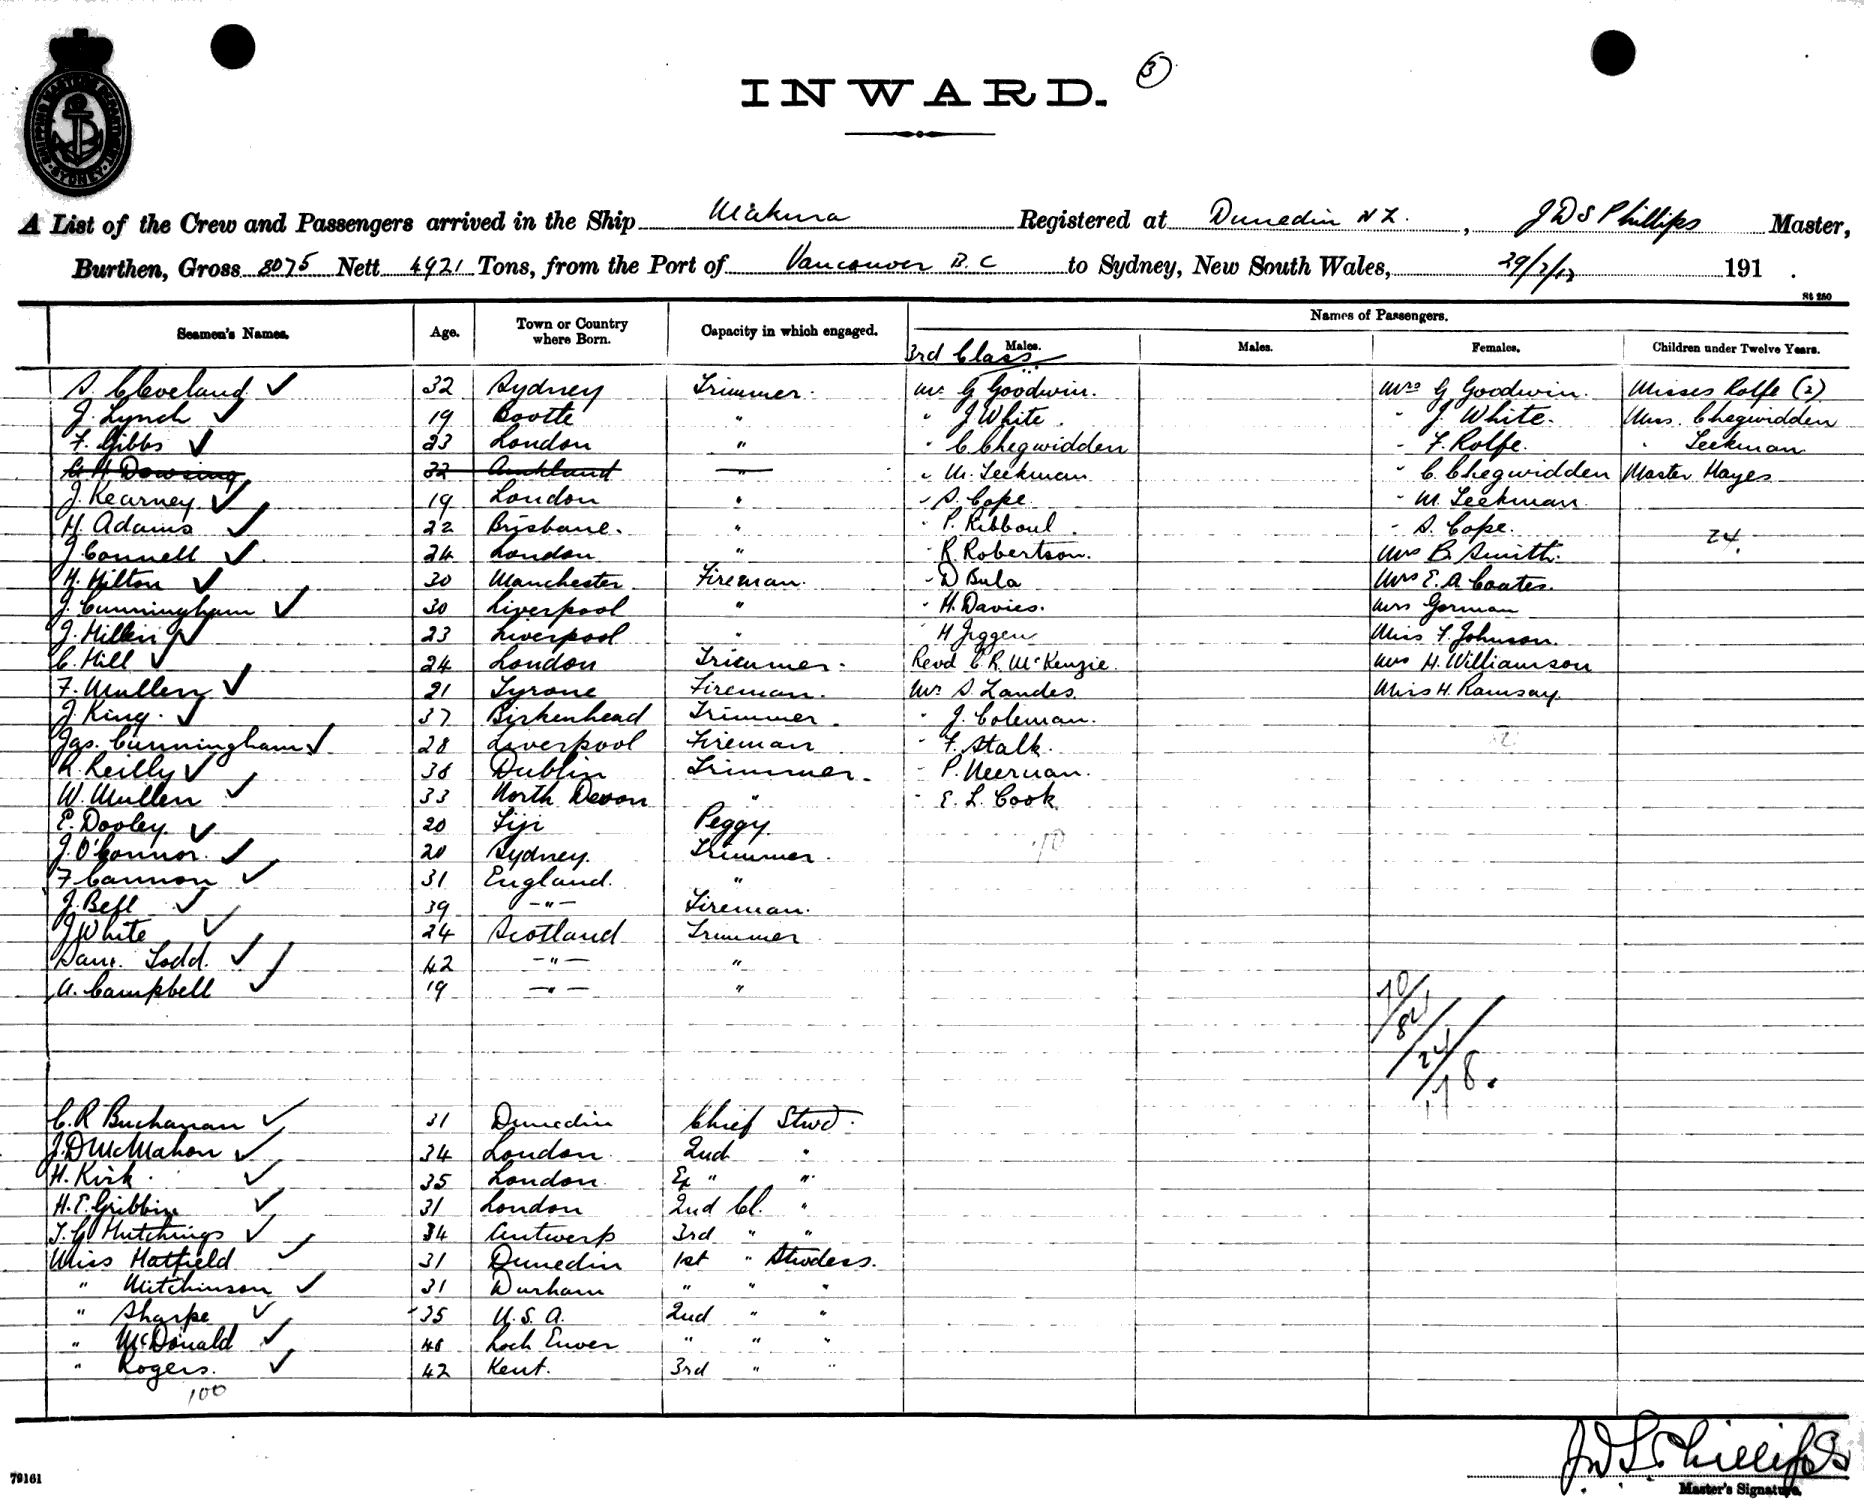 3
INWARD.
SHIPPING MASTER'S DEPARTMENT SYDNEY
A List of the Crew and Passengers arrived in the Ship Makura Registered at Dunedin N Z. , J D S Phillips Master,
Burthen, Gross 8075 Nett 4921 Tons, from the Port of Vancouver B. C to Sydney, New South Wales, 29/7/12 191 .
St 250
Seamen's Names. Age. Town or Country where Born. Capacity in which engaged. Names of Passengers.
Males. Males. Females. Children under Twelve Years.
3rd Class
S. Cleveland ✓ 32 Sydney Trimmer. Mr G Goodwin. Mrs G Goodwin. Misses Rolfe (2)
J. Lynch ✓ 19 Bootle " " J White. " J White. Miss. Chegwidden
F. Gibbs ✓ 23 London " " C Chegwidden " F. Rolfe. " Leekman
G. H. Dowsing 32 Auckland " " M. Leekman " C Chegwidden Master Hayes
J. Kearney ✓ 19 London " " S. Cope " M. Leekman
H. Adams ✓ 22 Brisbane. " " P. Ribboul. " S. Cope.
J. Connell ✓ 24 London " " R. Robertson. Mrs B. Smith. 24.
H. Hilton ✓ 30 Manchester Fireman. " D Bula Mrs E. A. Coates.
J. Cunningham ✓ 30 Liverpool " " H. Davies. Mrs Gorman
J. Millin ✓ 23 Liverpool " H Jggen Miss F. Johnson.
C. Hill ✓ 24 London Trimmer. Revd C. R. McKenzie. Mrs H. Williamson
F. Mullen ✓ 21 Tyrone Fireman. Mr S. Landes. Miss H. Ramsay.
J King. ✓ 37 Birkenhead Trimmer. " J. Coleman.
Jas. Cunningham ✓ 28 Liverpool Fireman " F. Stalk.
R. Reilly ✓ 36 Dublin Trimmer. " P. Neerman.
W. Mullen ✓ 33 North Devon " " E. L. Cook
E. Dooley ✓ 20 Fiji Peggy
J. O'Connor. ✓ 20 Sydney. Trimmer.
F Cannon ✓ 31 England. "
J. Bell ✓ 39 -"- Fireman.
J White ✓ 24 Scotland Trimmer
Saml. Todd. ✓ 42 -"- "
A. Campbell ✓ 19 -"- "
C. R Buchanan ✓ 31 Dunedin Chief Stwd.
J. D McMahon ✓ 34 London 2nd "
H. Kirk. ✓ 35 London Ex " "
H. E. Gribbin ✓ 31 London 2nd Cl. "
T. G Hutchings ✓ 34 Antwerp 3rd " "
Miss Hatfield ✓ 31 Dunedin 1st " Stwdess.
" Mitchinson ✓ 31 Durham " " "
" Sharpe ✓ 35 U. S. A. 2nd " "
" McDonald ✓ 48 Loch Enver " " "
" Rogers. ✓ 42 Kent. 3rd " "
100
J. D. S. Phillips
Master's Signature.
79161